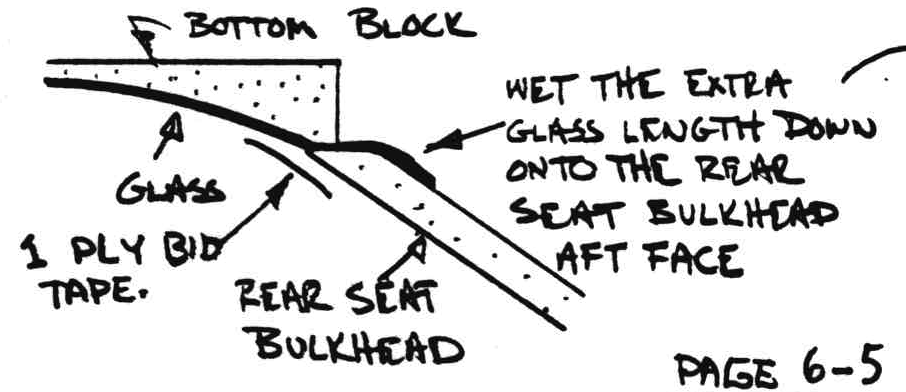 BOTTOM BLOCK
WET THE EXTRA
GLASS LENGTH DOWN
ONTO THE REAR
SEAT BULKHEAD
AFT FACE
GLASS
1 PLY BID
TAPE.
REAR SEAT
BULKHEAD
PAGE 6-5